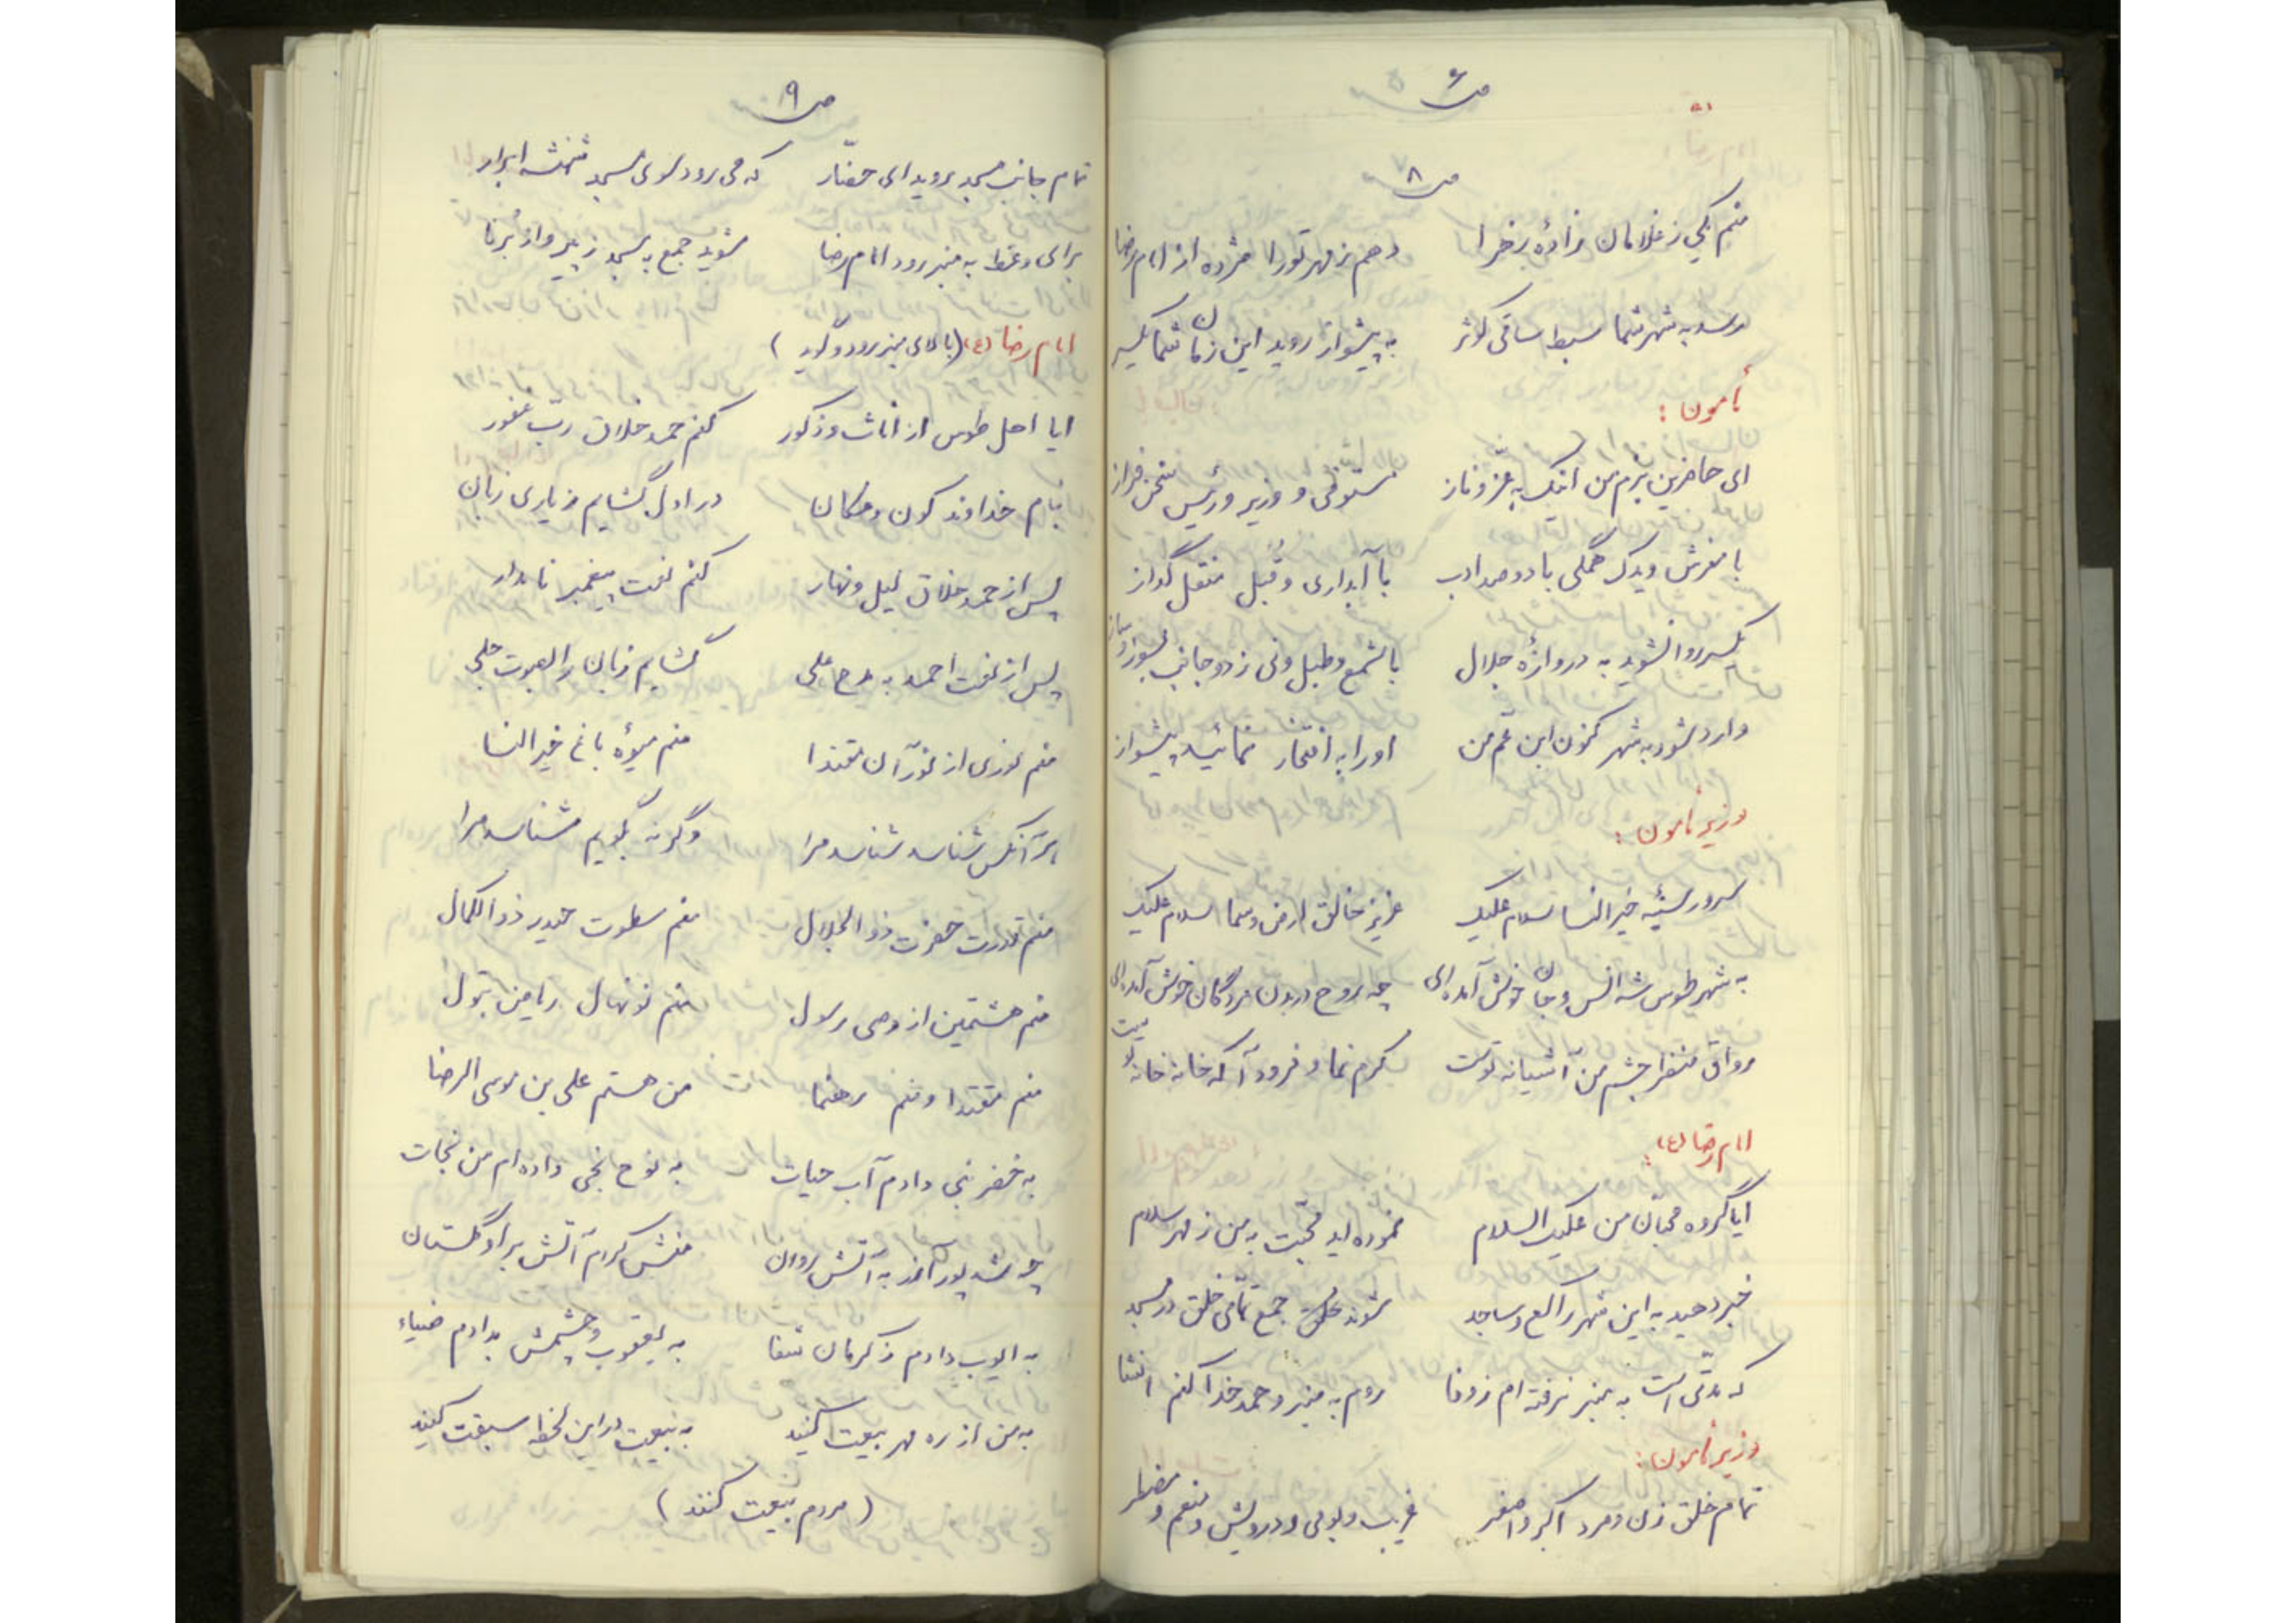 ص ۶
ص ۸
منم یکی ز غلامان زادهٔ زهرا دهم ز مهر تو را مژده از امام رضا
رسد به شهر شما سبط ساقی کوثر به پیشواز روید این زمان شما یکسر
مأمون :
ای حاضرین بزم من اینک به عزّ و ناز مستوفی و وزیر و رئیس سخن فراز
با مفرش و یدک همگی با دو صد ادب با آبداری و قبل منقل گداز
یکسر روا نشوید به دروازهٔ جلال با شمع و طبل و نی ز دو جانب بسوز و ساز
وارد شود به شهر کنون ابن عم من او را به افتخار نمائید پیشواز
وزیر مأمون :
سرور سینهٔ خیر النسا سلام علیک عزیز خالق ارض و سما سلام علیک
به شهر طوس شه انس و جان خوش آمده ای چه روح در بدن مردگان خوش آمده ای
رواق منظر چشم من آشیانه توست کرم نما و فرود آ که خانه خانهٔ توست
امام رضا (ع) :
ایا گروه محبّان من علیک السلام نموده اید محبّت به من ز مهر سلام
خبر دهید به این شهر راکع و ساجد شوند جمع تمامی خلق در مسجد
که مدّتی است به منبر نرفته ام ز وفا روم به منبر و حمد خدا کنم انشا
وزیر مأمون :
تمام خلق زن و مرد اکبر و اصغر غریب و بومی و درویش و منعم و مضطر
ص ۹
تمام جانب مسجد روید ای حضّار که می رود سوی مسجد شهنشه ابرار
برای وعظ به منبر رود امام رضا شوید جمع به مسجد ز پیر و از برنا
امام رضا (ع) (بالای منبر رود و گوید )
ایا اهل طوس از اناث و ذکور کنم حمد خلاق ربّ غفور
بنام خداوند کون و مکان در اول گشایم ز یاری زبان
پس از حمد خلاق لیل و نهار کنم نعت پیغمبر نامدار
پس از نعت احمد به مدح علی گشایم زبان را بصوت جلی
منم نوری از نور آن مقتدا منم میوهٔ باغ خیر النسا
هر آنکس شناسد شناسد مرا وگرنه بگویم شناسد مرا
منم قدرت حضرت ذوالجلال منم سطوت حیدر ذوالکمال
منم هشتمین از وصی رسول منم نونهال ریاض بتول
منم مقتدا و منم رهنما من هستم علی بن موسی الرضا
به خضر نبی دادم آب حیات به نوح نجی داده ام من نجات
چه شد پور آذر به آتش روان منش کردم آتش بر او گلستان
به ایوب دادم ز کرمان شفا به یعقوب و چشمش بدادم ضیاء
به من از ره مهر بیعت کنید به بیعت در این لحظه سبقت کنید
( مردم بیعت کنند )